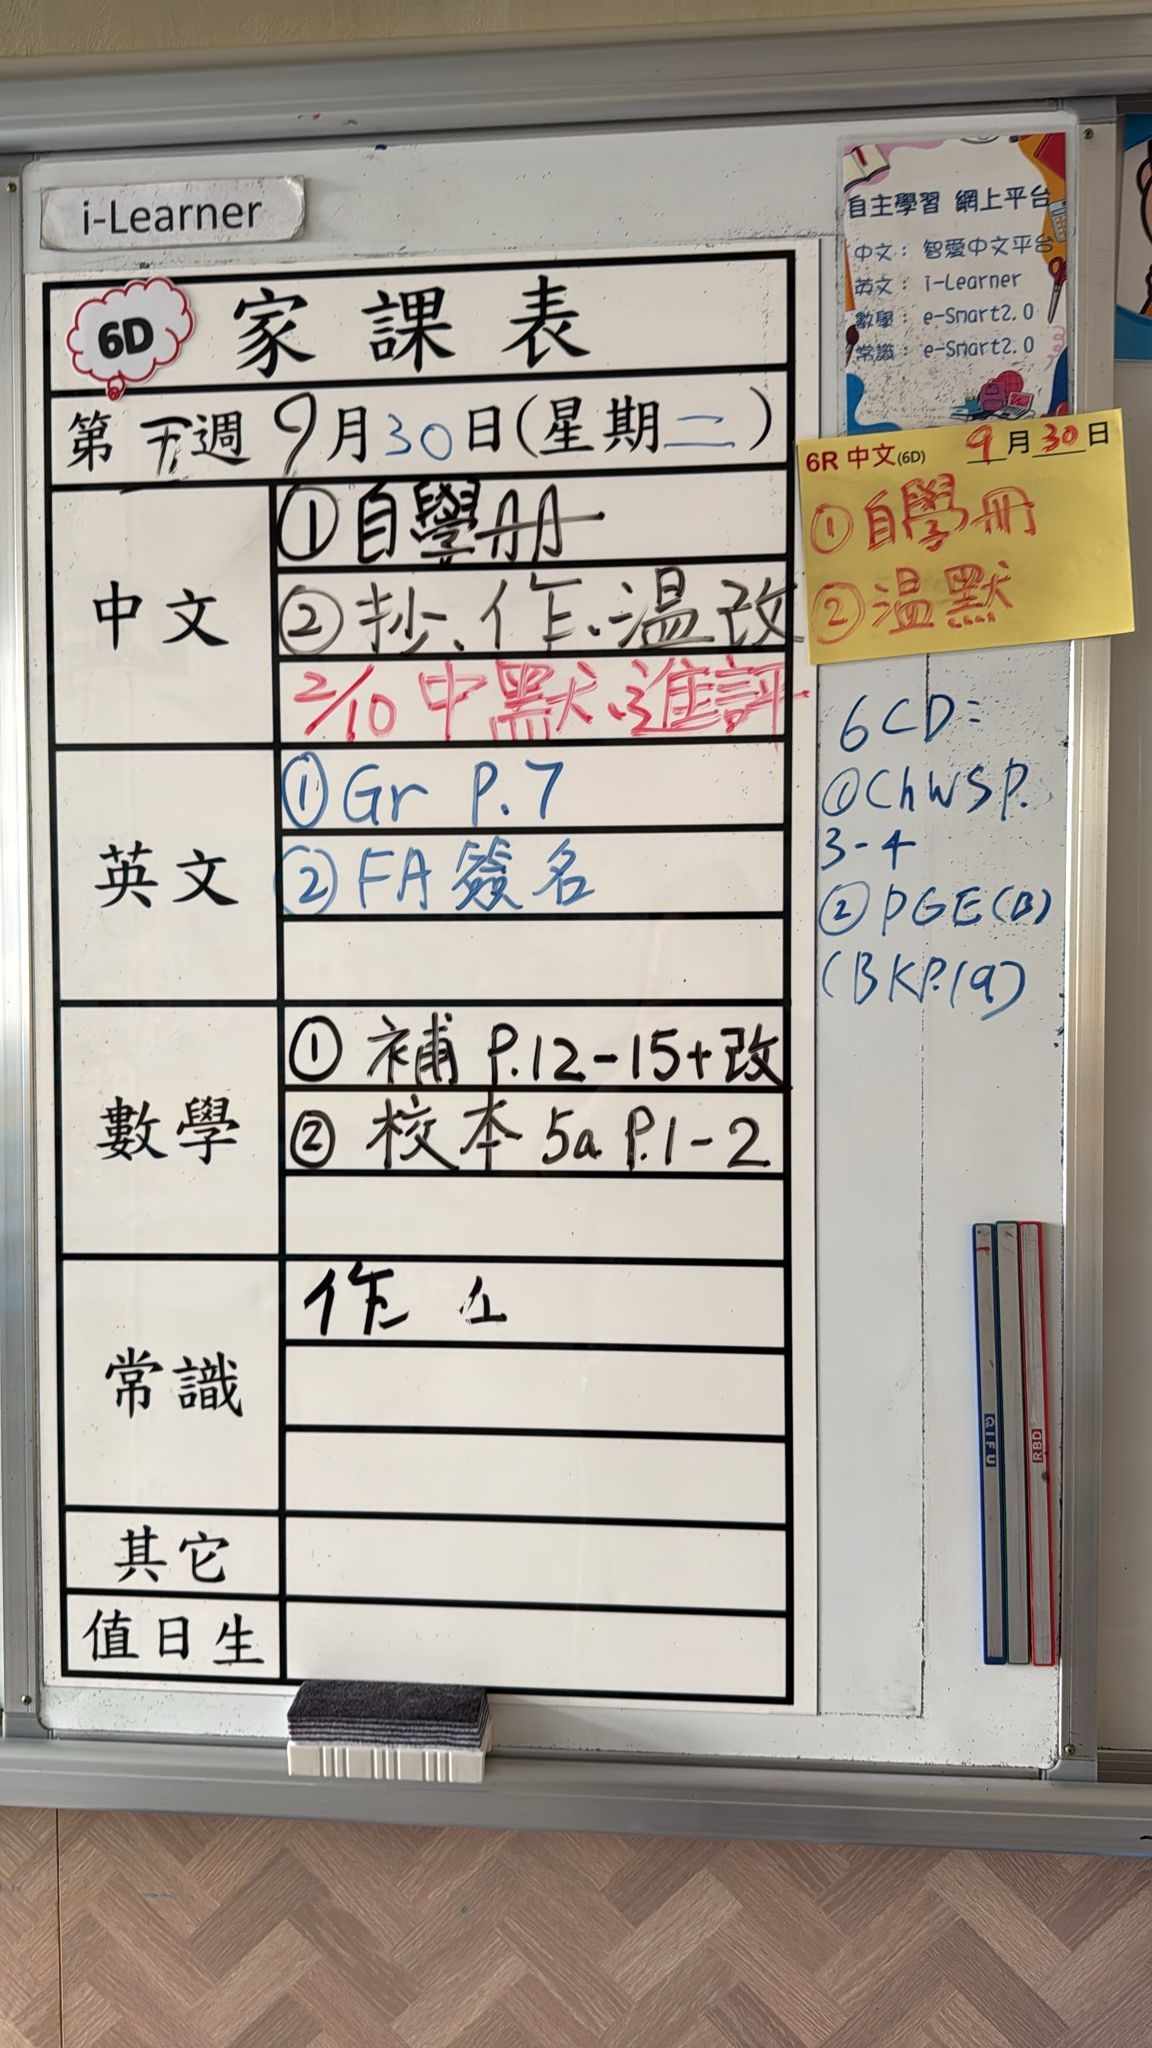 i-Learner
6D 家課表
第五週 9月30日(星期二)
中文
①自學冊
②抄、作、溫改
2/10 中默、進評
英文
①Gr P.7
②FA 簽名
數學
① 補 P.12-15+改
② 校本 5a P.1-2
常識
作
其它
值日生
自主學習 網上平台
中文：智愛中文平台
英文：i-Learner
數學：e-Smart2.0
常識：e-Smart2.0
6R 中文(6D) 9月30日
①自學冊
②溫默
6CD:
①ChWS P.
3-4
②PGE(B)
(BKP.19)
QIFU
RBD